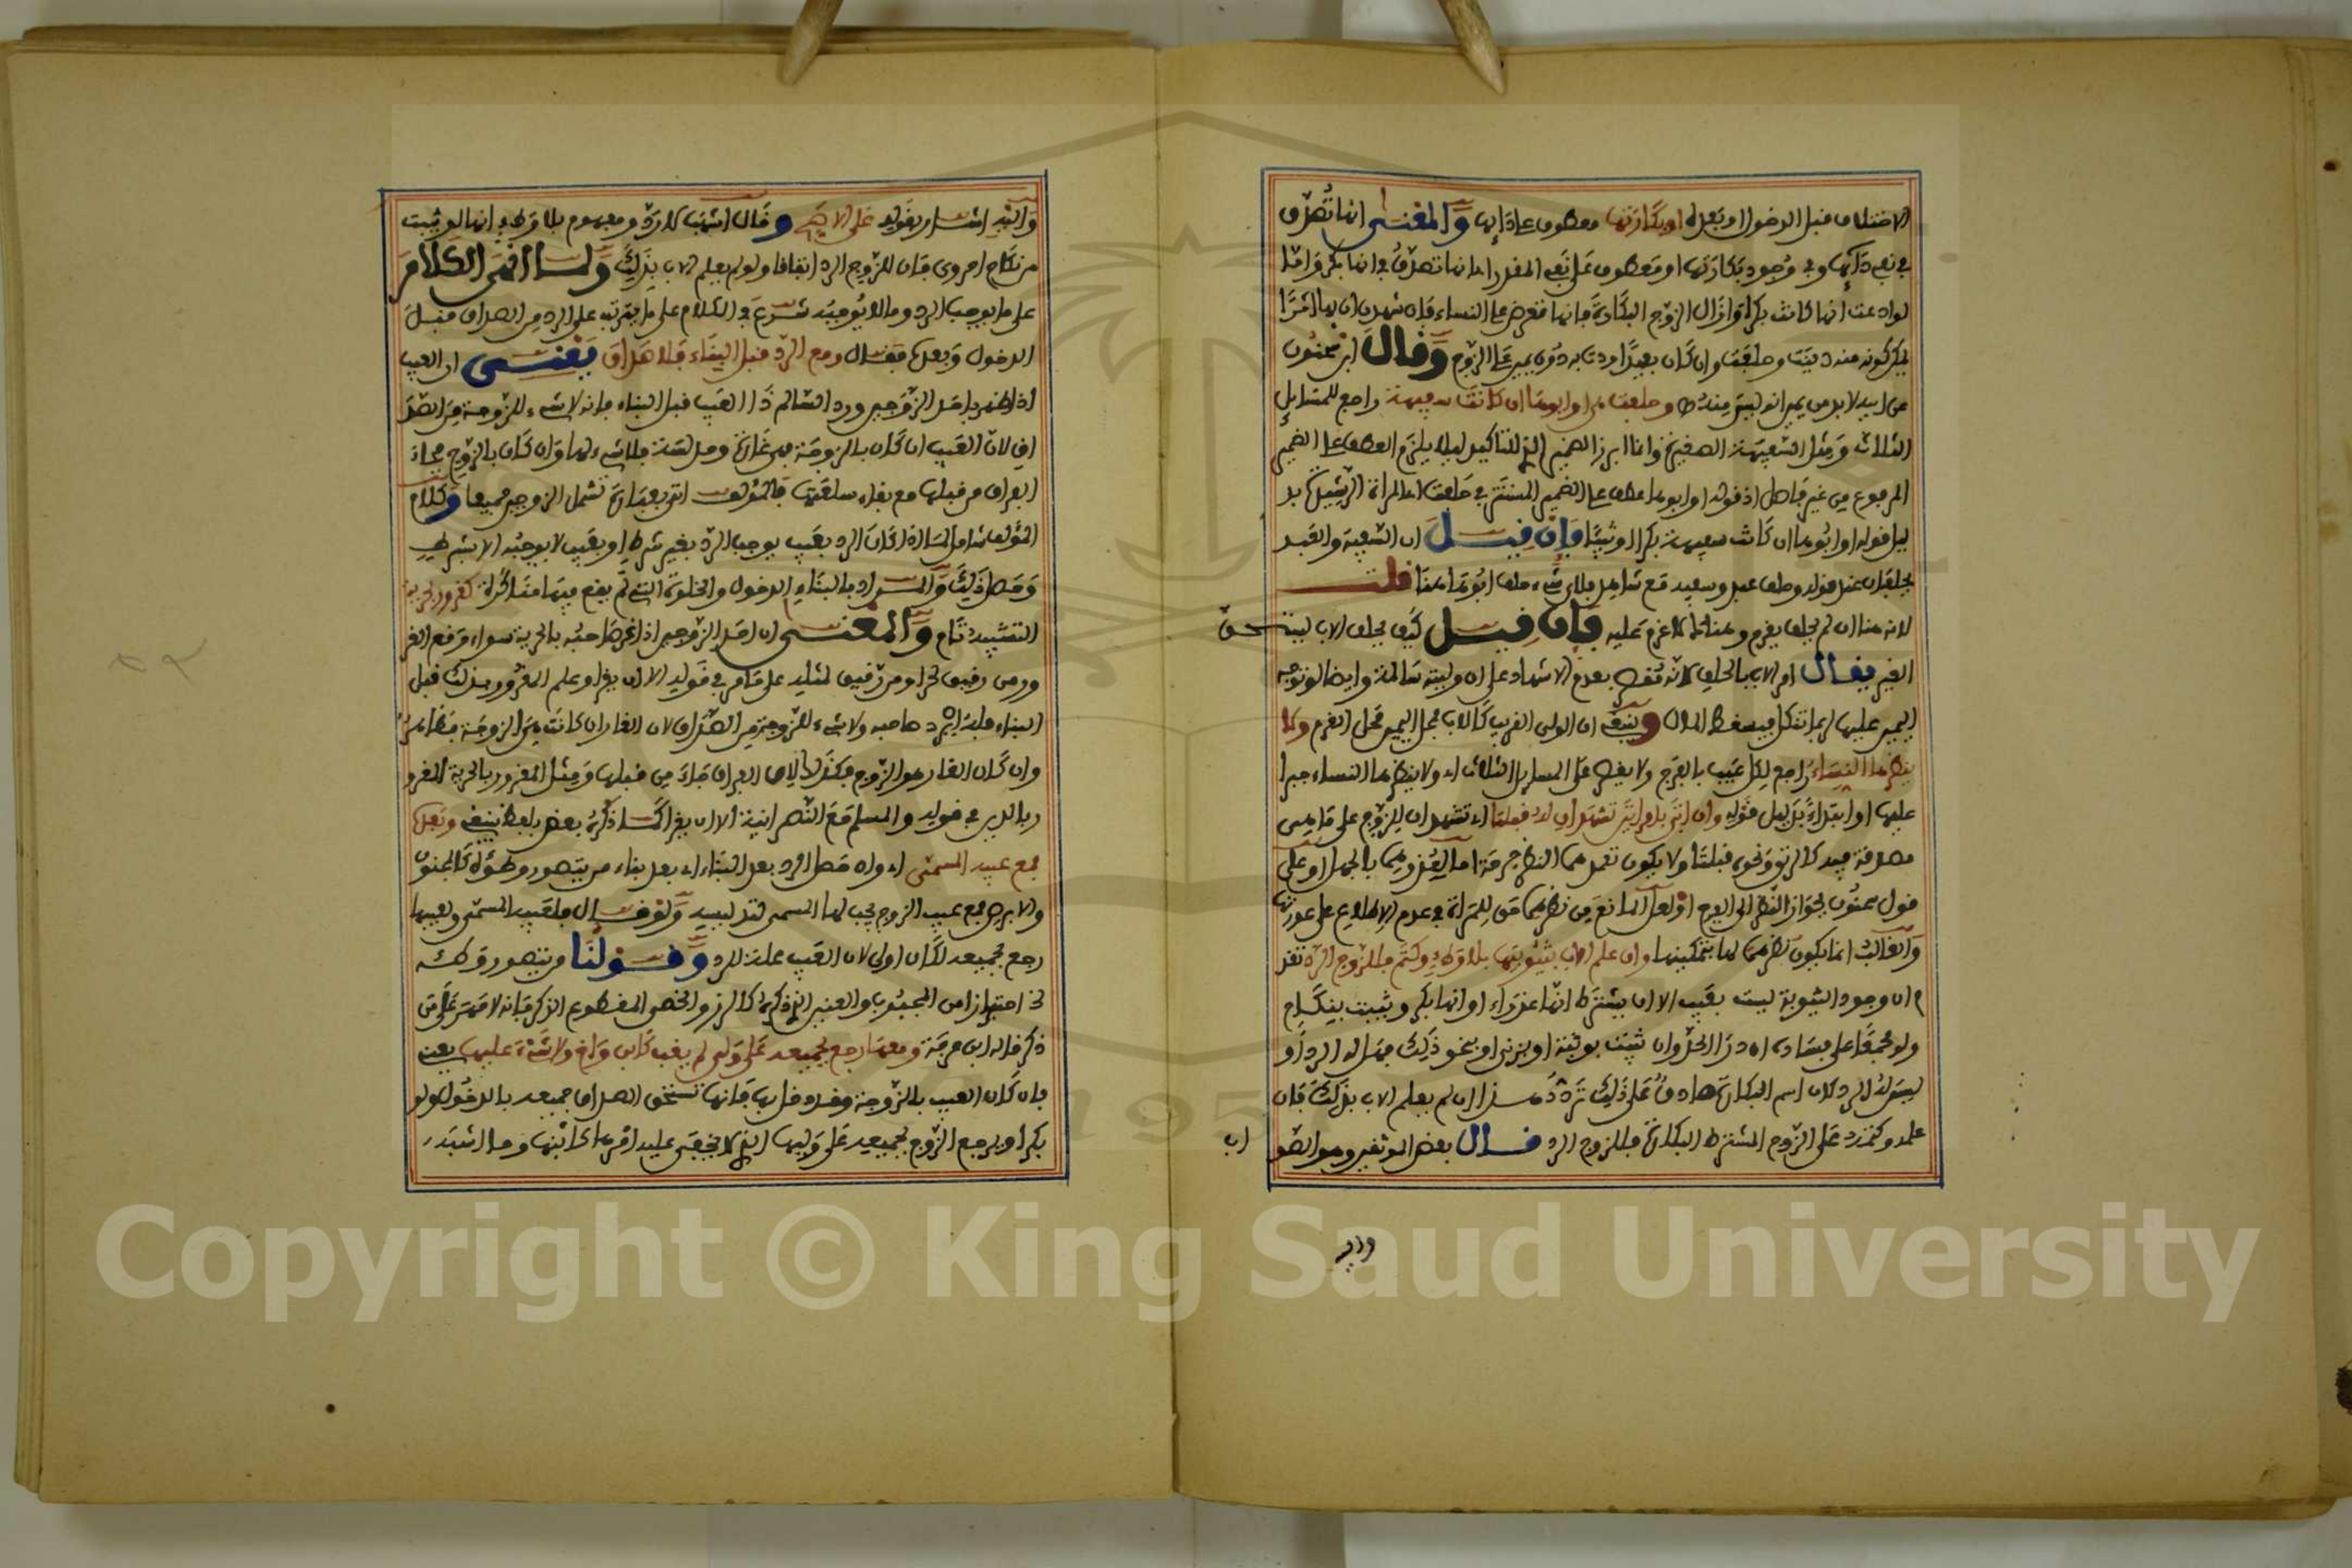 الاختلاف قبل الدخول او بعده او بكارتها معطوف على دائها والمعنى انها تصدق
في نفي دائها وفي وجود بكارتها او معطوف على نفي المقدر اي انها تصدق في انها بكر واما
لو ادعت انها كانت بكرا وازال الزوج البكارة فانها تعرض على النساء فان شهدن ان بها اثرا
يمكن كونه منه دينت وحلفت وان كان بعيدا ردت به دون يمين على الزوج وقال ابن سحنون
عن ابيه لا بد من يمين انه ليس منه وحلفت هي او ابوها ان كانت سفيهة راجع للمسايل
الثلاث ومثل السفيهة الصغيرة وانما ابرز الضمير الذي للتاكيد ليلا يلزم العطف على الضمير
المرفوع من غير فاصل اذ قوله او ابوها عطف على الضمير المستتر في حلفت اي المراة الرشيدة بد
ليل قوله او ابوها ان كانت سفيهة بكرا او ثيبا فان قيل ان السفيه والعبد
يحلفان عند قوله وحلف عبد وسفيه مع شاهد فلاي شيء حلف ابوها هنا قلت
لانه هنا ان لم يحلف يغرم وهناك لا غرم عليه فان قيل كيف يحلف الاب ليستحق
الغير يقال امر الاب بالحلف لانه مقصر بعدم الاشهاد على ان وليته سالمة وايضا لو توجه
اليمين عليها ربما تنكل فيسقط المال وينبغي ان الولي القريب كالاب محل اليمين محل الغرم ولا
ينظرها النساء راجع لكل عيب بالفرج ولا يقصر على المسايل الثلاث اي ولا ينظرها النساء جبرا
عليها او ابتداء بدليل قوله وان اتى بامراتين تشهدان له قبلتا اي تشهدان للزوج على ما هي
مصدقة فيه كالرتق ونحوه قبلتا ولا يكون تعمدهما النظر جرحة اما لعذرهما بالجهل او على
قول سحنون بجواز النظر الى الفرج او لعل المانع من نظرهما حق للمراة في عدم الاطلاع على عورتها
والغالب انما يكون نظرهما لها بتمكينها وان علم الاب بثيوبتها بلا وطء وكتم فللزوج الرد تقد
م ان وجود الثيوبة ليست بعيب الا ان يشترط انها عذراء او انها بكر وثيبت بنكاح
ولو مجمعا على فساده ان درا الحد وان ثيبت بوثبة او بزنى او بنحو ذلك فهل له الرد او
ليس له الرد لان اسم البكارة صادق على ذلك تردد هذا ان لم يعلم الاب بذلك فان
علمه وكتمه على الزوج المشترط البكارة فللزوج الرد قال بعض الموثقين وهو الصو
اب
والي
واليه اشار بقوله على الاصح وقال اشهب لا رد ومفهوم بلا وطء انها لو ثيبت
من نكاح احروي فان للزوج الرد اتفاقا ولو لم يعلم الاب بذلك ولما انهى الكلام
على ما يوجب الرد وما لا يوجبه شرع في الكلام على ما يترتب على الرد من الصداق قبل
الدخول وبعده فقال ومع الرد قبل البناء فلا صداق يعني ان العيب
اذا ظهر باحد الزوجين ورد السالم ذا العيب قبل البناء فانه لا شيء للزوجة من الصد
اق لان العيب ان كان بالزوجة فهي غارة ومدلسة فلا شيء لها وان كان بالزوج فجاء
الفراق من قبلها مع بقاء سلعتها فالمؤلف اتى بعبارة تشمل الزوجين جميعا وكلام
المؤلف شامل لما اذا كان الرد بعيب يوجب الرد بغير شرط او بعيب لا يوجبه الا بشرط
وحصل ذلك والمراد بالبناء الدخول والخلوة التي لم يقع فيها مناكرة كغرور بحرية
التشبيه تام والمعنى ان احد الزوجين اذا غر صاحبه بالحرية سواء وقع الغر
ور من رقيق لحر او من رقيق لمثله على ما مر في قوله الا ان يغرا وعلم المغرور بذلك قبل
البناء فله ان يرد صاحبه ولا شيء للزوجة من الصداق لان الغار ان كانت هي الزوجة فظاهر
وان كان الغار هو الزوج فكذلك لان الفراق جاء من قبلها ومثل المغرور بالحرية المغرو
ر بالدين في قوله والمسلم مع النصرانية الا ان يغرا كما ذكره بعض بلفظ ينبغي وبعده
فمع عيبه المسمى اي وان حصل الرد بعد البناء اي بعد بناء من يتصور وطؤه كالمجنون
والابرص فمع عيب الزوج يجب لها المسمى لتدليسه ولو قال فلعيبه المسمى ولعيبها
رجع بجميعه لكان اولى لان العيب علة للرد وقولنا من يتصور وطئه
اخ احترازا من المجبوب والعنين الذي ذكره كالزر والخصي المقطوع الذكر فانه لا مهر على من
ذكر قاله ابن عرفة ومعها رجع بجميعه على ولي لم يغب كابن واخ ولا شيء عليها يعني
فان كان العيب بالزوجة وقد دخل بها فانها تستحق الصداق جميعه بالدخول ولو
بكرا ويرجع الزوج بجميعه على وليها الذي لا يخفى عليه امرها كابنها وما اشبه